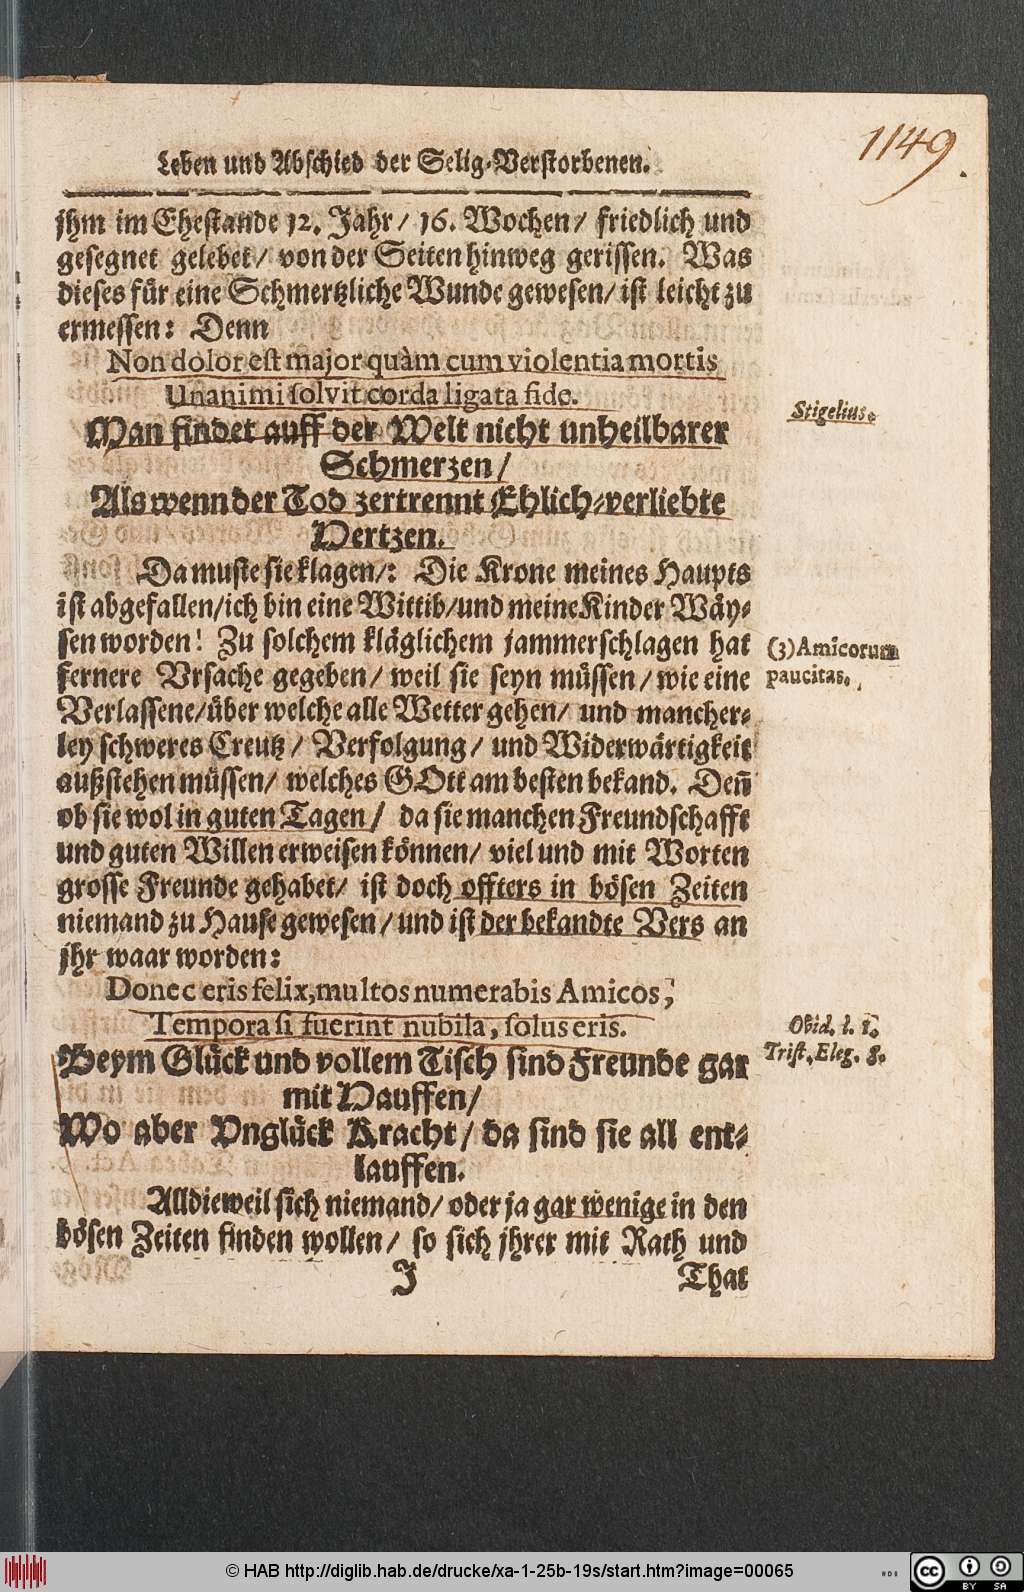 1149.
Leben und Abschied der Selig-Verstorbenen.
jhm im Ehestande 12. Jahr/ 16. Wochen/ friedlich und
gesegnet gelebet/ von der Seiten hinweg gerissen. Was
dieses für eine Schmertzliche Wunde gewesen/ ist leicht zu
ermessen: Denn
Non dolor est major quàm cum violentia mortis
Unanimi solvit corda ligata fide.
Stigelius.
Man findet auff der Welt nicht unheilbarer
Schmerzen/
Als wenn der Tod zertrennt Ehlich-verliebte
Hertzen.
Da muste sie klagen/: Die Krone meines Haupts
ist abgefallen/ich bin eine Wittib/und meine Kinder Wäy-
sen worden! Zu solchem kläglichem jammerschlagen hat
(3) Amicorum
fernere Vrsache gegeben/ weil sie seyn müssen/ wie eine
paucitas.
Verlassene/über welche alle Wetter gehen/ und mancher-
ley schweres Creutz/ Verfolgung/ und Widerwärtigkeit
außstehen müssen/ welches GOtt am besten bekand. Den̄
ob sie wol in guten Tagen/ da sie manchen Freundschafft
und guten Willen erweisen können/ viel und mit Worten
grosse Freunde gehabet/ ist doch offters in bösen Zeiten
niemand zu Hause gewesen/ und ist der bekandte Vers an
jhr waar worden:
Donec eris felix, multos numerabis Amicos,
Tempora si fuerint nubila, solus eris.
Obid. l. 1.
Trist. Eleg. 8.
Beym Glück und vollem Tisch sind Freunde gar
mit Hauffen/
Wo aber Vnglück Kracht/ da sind sie all ent-
lauffen.
Alldieweil sich niemand/ oder ja gar wenige in den
bösen Zeiten finden wollen/ so sich jhrer mit Rath und
J That
© HAB http://diglib.hab.de/drucke/xa-1-25b-19s/start.htm?image=00065
cc BY SA